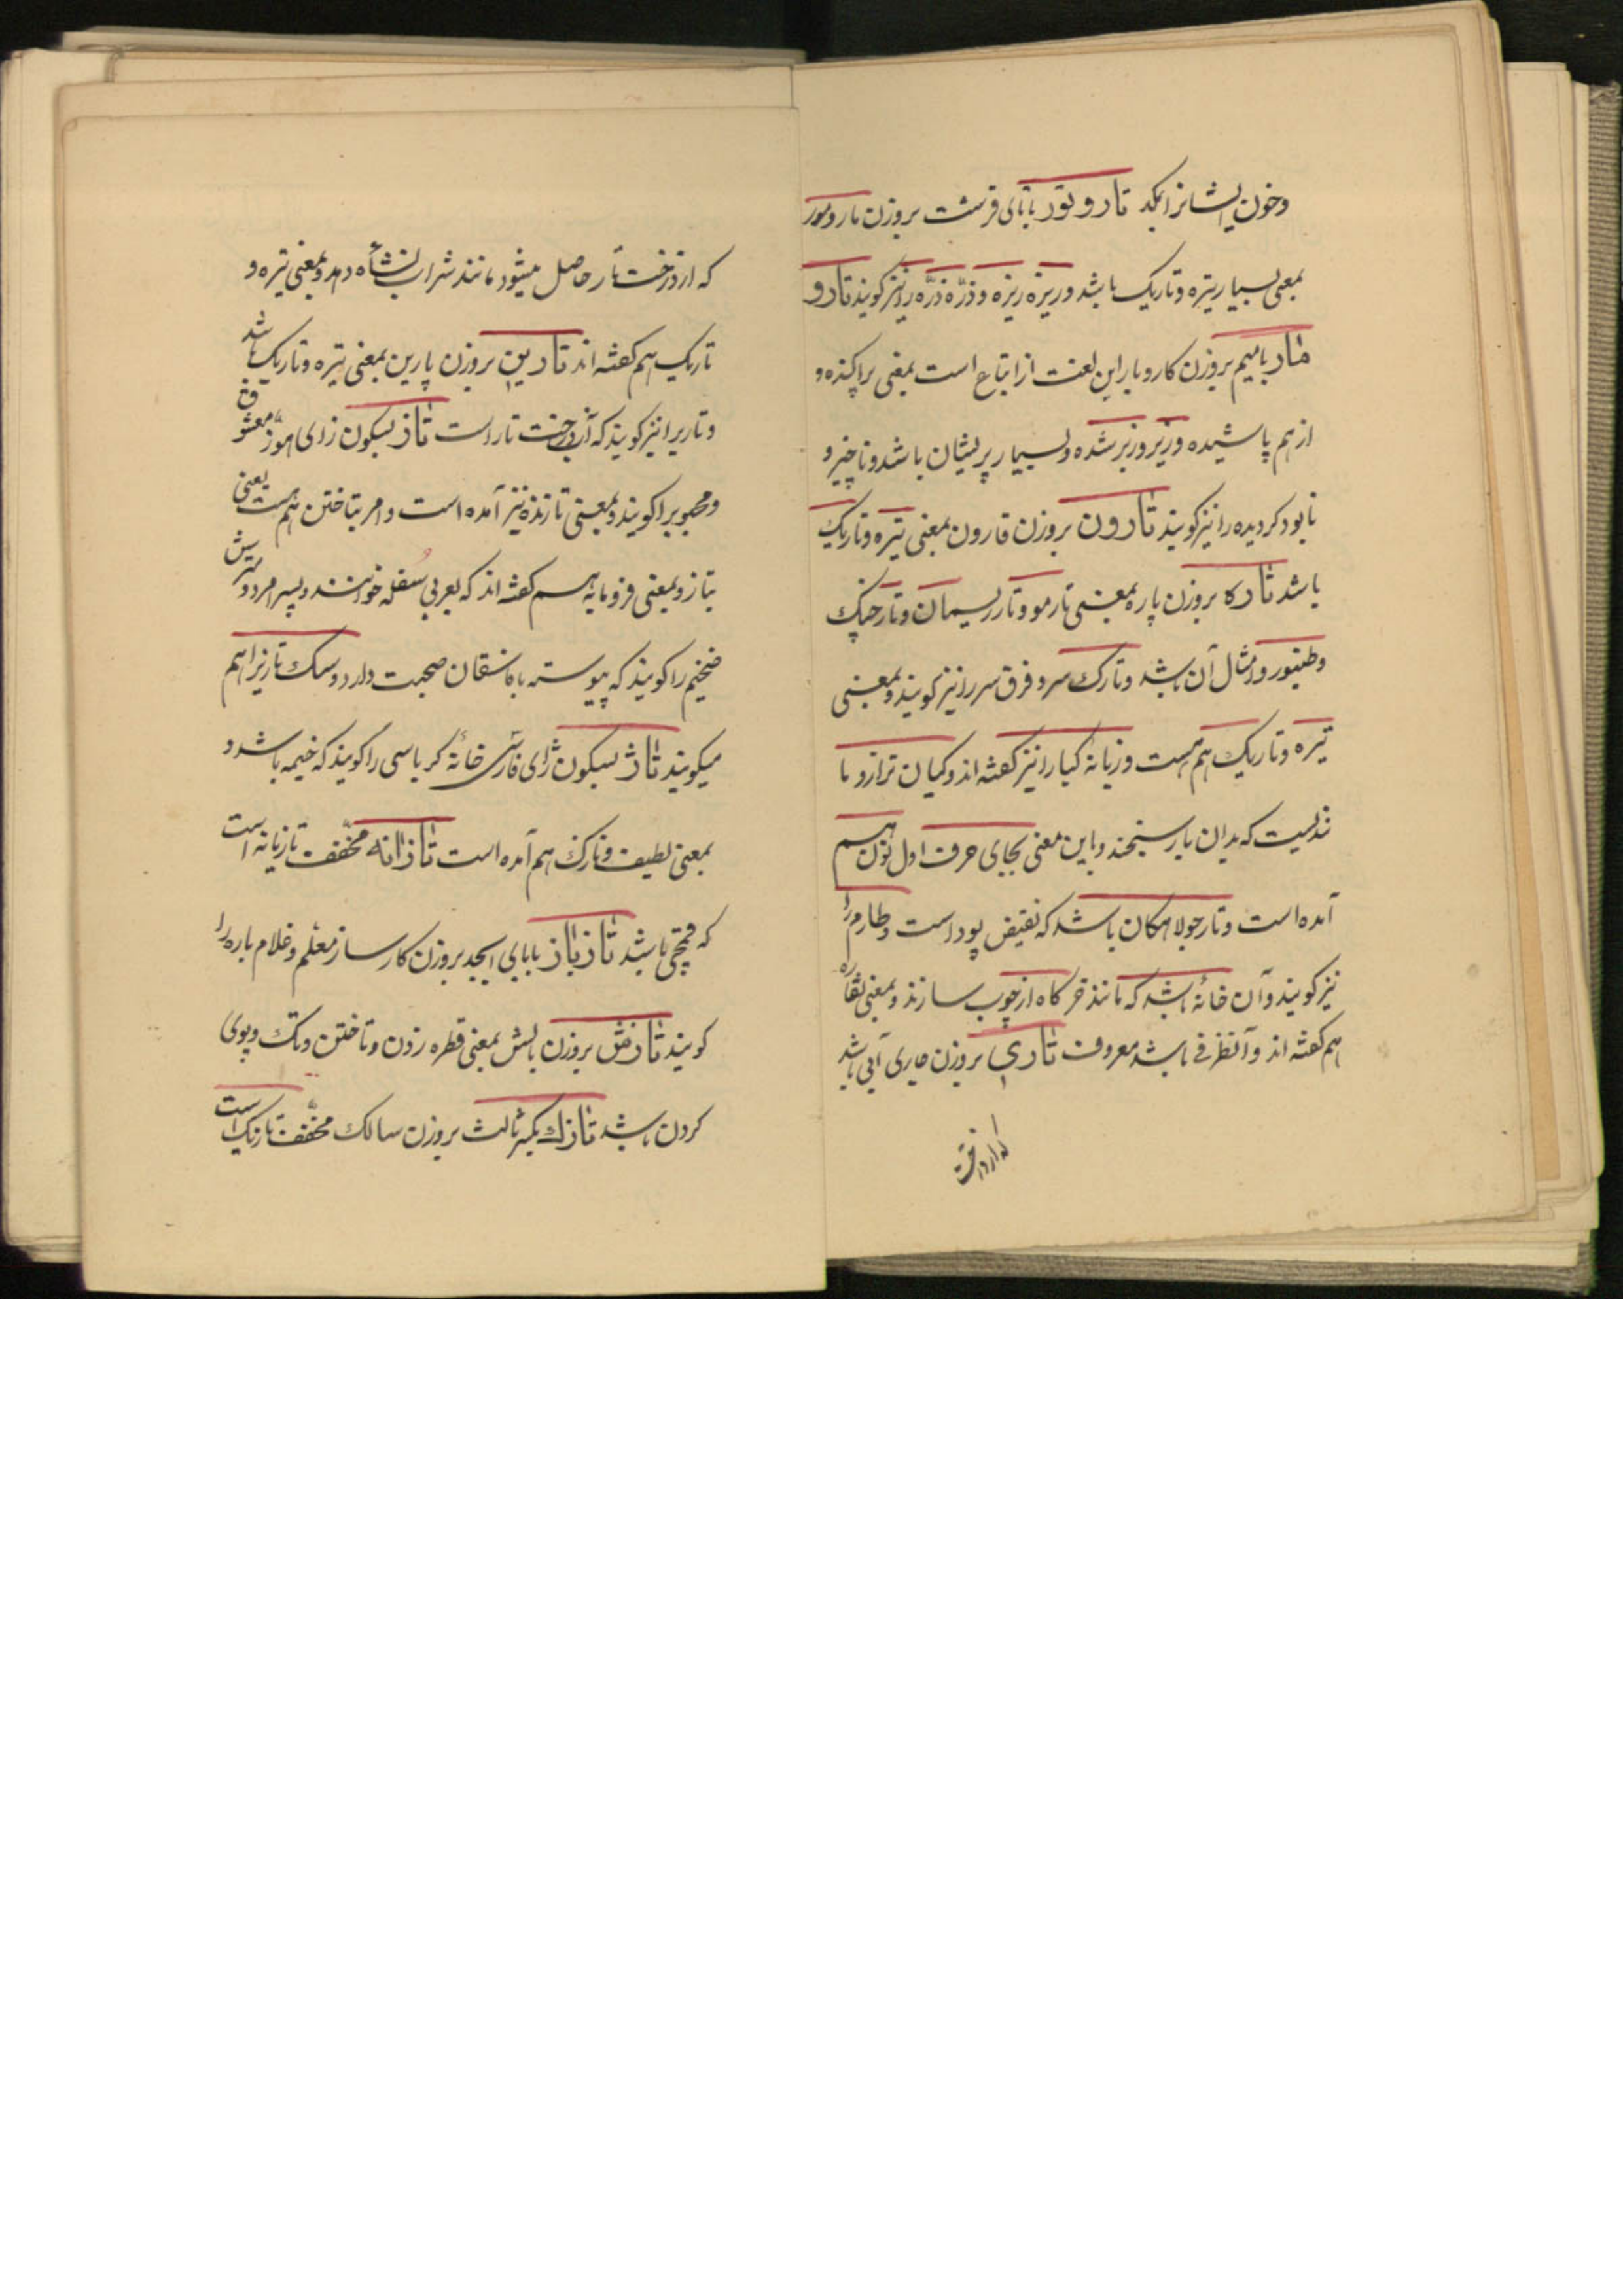 وخون ایشانرا بمکد تار و تور با تای قرشت بروزن مار و مور
بمعنی بسیار تیره و تاریک باشد و ریزه ریزه و ذرّه ذرّه را نیز کویند تار و
مار با میم بروزن کار و بار این لغت از اتباع است بمعنی پراکنده و
از هم پاشیده و زیر و زبر شده و بسیار پریشان باشد و ناچیز و
نابود کردیده را نیز کویند تارون بروزن قارون بمعنی تیره و تاریک
باشد تاره بروزن پاره بمعنی تار مو و تار ریسمان و تار چنک
و طنبور و امثال آن باشد و تارک سر و فرق سر را نیز کویند و بمعنی
تیره و تاریک هم هست و زبانهٔ کپان را نیز کفته اند و کپان ترازو ما
نندیست که بدان بار سنجند و باین معنی بجای حرف اول نون هم
آمده است و تار جولاهکان باشد که نقیض پود است و طارم را
نیز کویند و آن خانهٔ باشد که مانند خرکاه از چوب سازند و بمعنی نقاره
هم کفته اند و آنظرفی باشد معروف تاری بروزن جاری آبی باشد
که از درخت
که از درخت تار حاصل میشود مانند شراب نشأه دهد و بمعنی تیره و
تاریک هم کفته اند تارین بروزن پارین بمعنی تیره و تاریک باشد
و تاریرا نیز کویند که آب درخت تار است تاز بسکون زای هوّز معشوق
و محبوبرا کویند و بمعنی تازنده نیز آمده است و امر بتاختن هم هست یعنی
بتاز و بمعنی فرومایه هم کفته اند که بعربی سُفله خوانند و پسر امرد درشت
ضخیم را کویند که پیوسته با فاسقان صحبت دارد و سک تازیرا هم
میکویند تاژ بسکون ژای فارسی خانهٔ کرباسی را کویند که خیمه باشد و
بمعنی لطیف و نازک هم آمده است تازانه مخفّف تازیانه است
که قمچی باشد تازباز با بای ابجد بروزن کارساز مغلم و غلام باره را
کویند تازش بروزن بالش بمعنی قطره زدن و تاختن و تک و پوی
کردن باشد تازک بکسر ثالث بروزن سالک مخفّف تازیک است